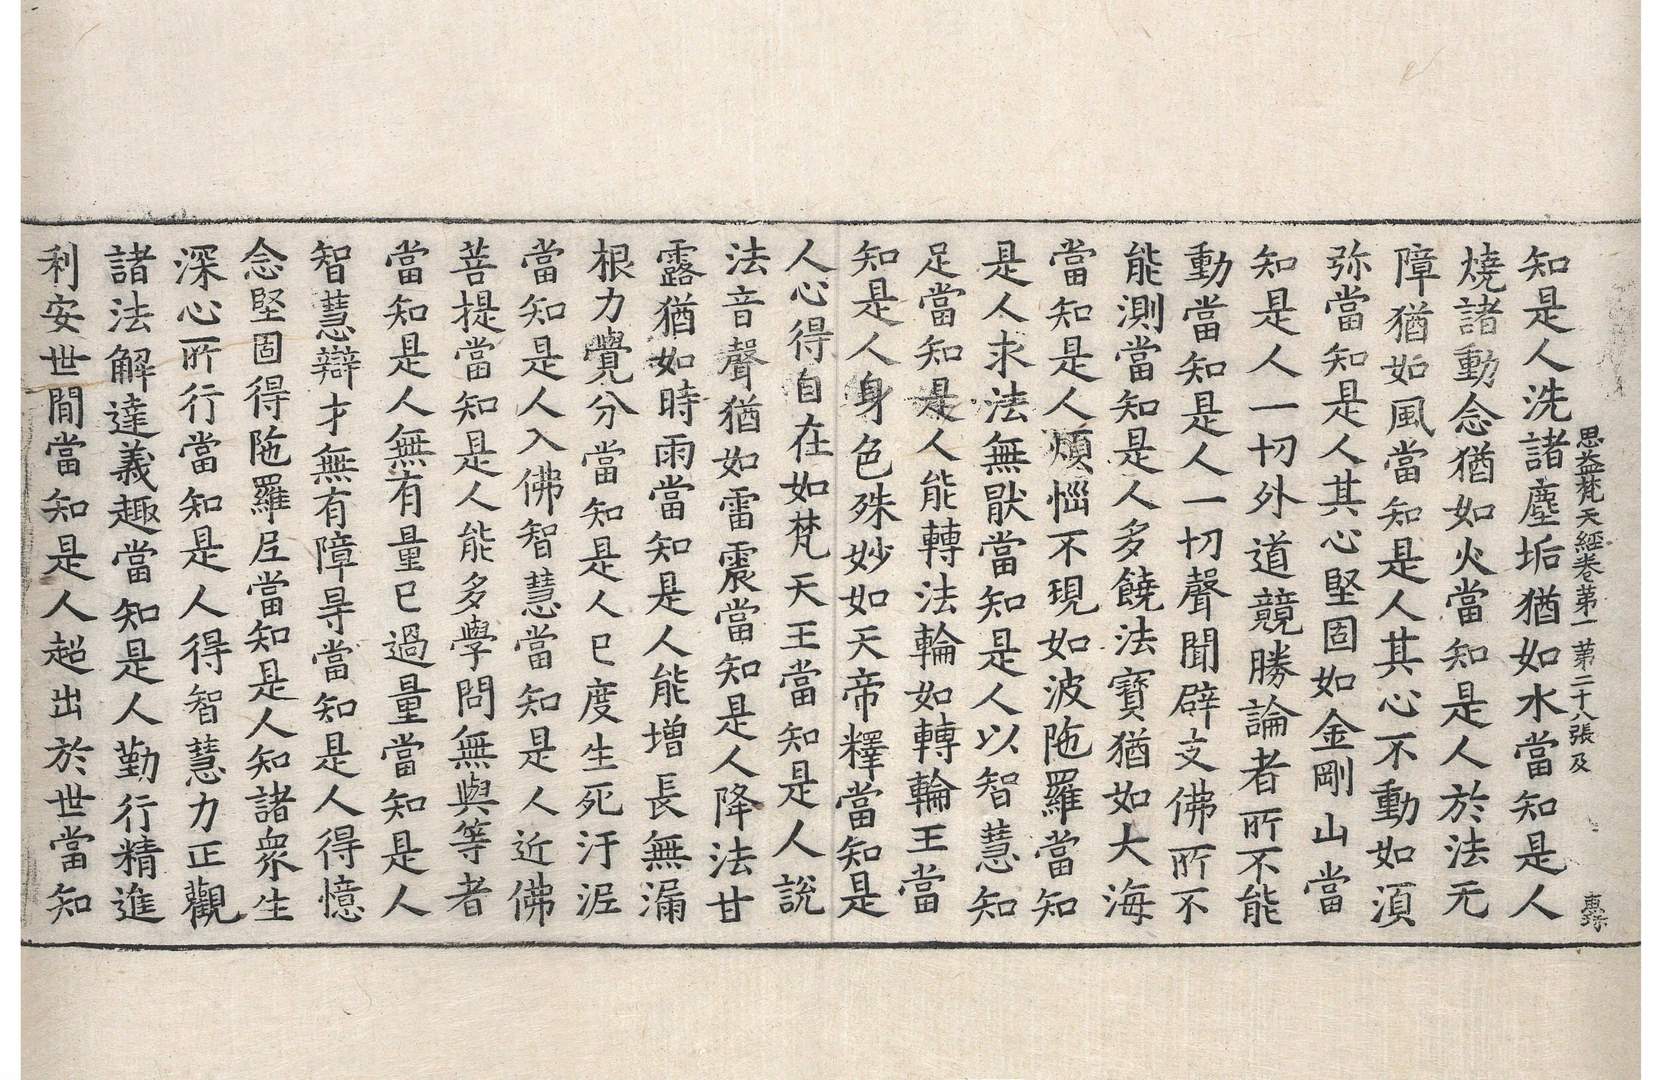 思益梵天經卷第一 第二十八張 及
知是人洗諸塵垢猶如水當知是人
燒諸動念猶如火當知是人於法无
障猶如風當知是人其心不動如湏
弥當知是人其心堅固如金剛山當
知是人一切外道競勝論者所不能
動當知是人一切聲聞辟支佛所不
能測當知是人多饒法寶猶如大海
當知是人煩惱不現如波陁羅當知
是人求法無猒當知是人以智慧知
足當知是人能轉法輪如轉輪王當
知是人身色殊妙如天帝釋當知是
人心得自在如梵天王當知是人說
法音聲猶如雷震當知是人降法甘
露猶如時雨當知是人能增長無漏
根力覺分當知是人已度生死汙泥
當知是人入佛智慧當知是人近佛
菩提當知是人能多學問無與等者
當知是人無有量已過量當知是人
智慧辯才無有障㝵當知是人得憶
念堅固得陁羅尼當知是人知諸衆生
深心所行當知是人得智慧力正觀
諸法解達義趣當知是人勤行精進
利安世間當知是人超出於世當知